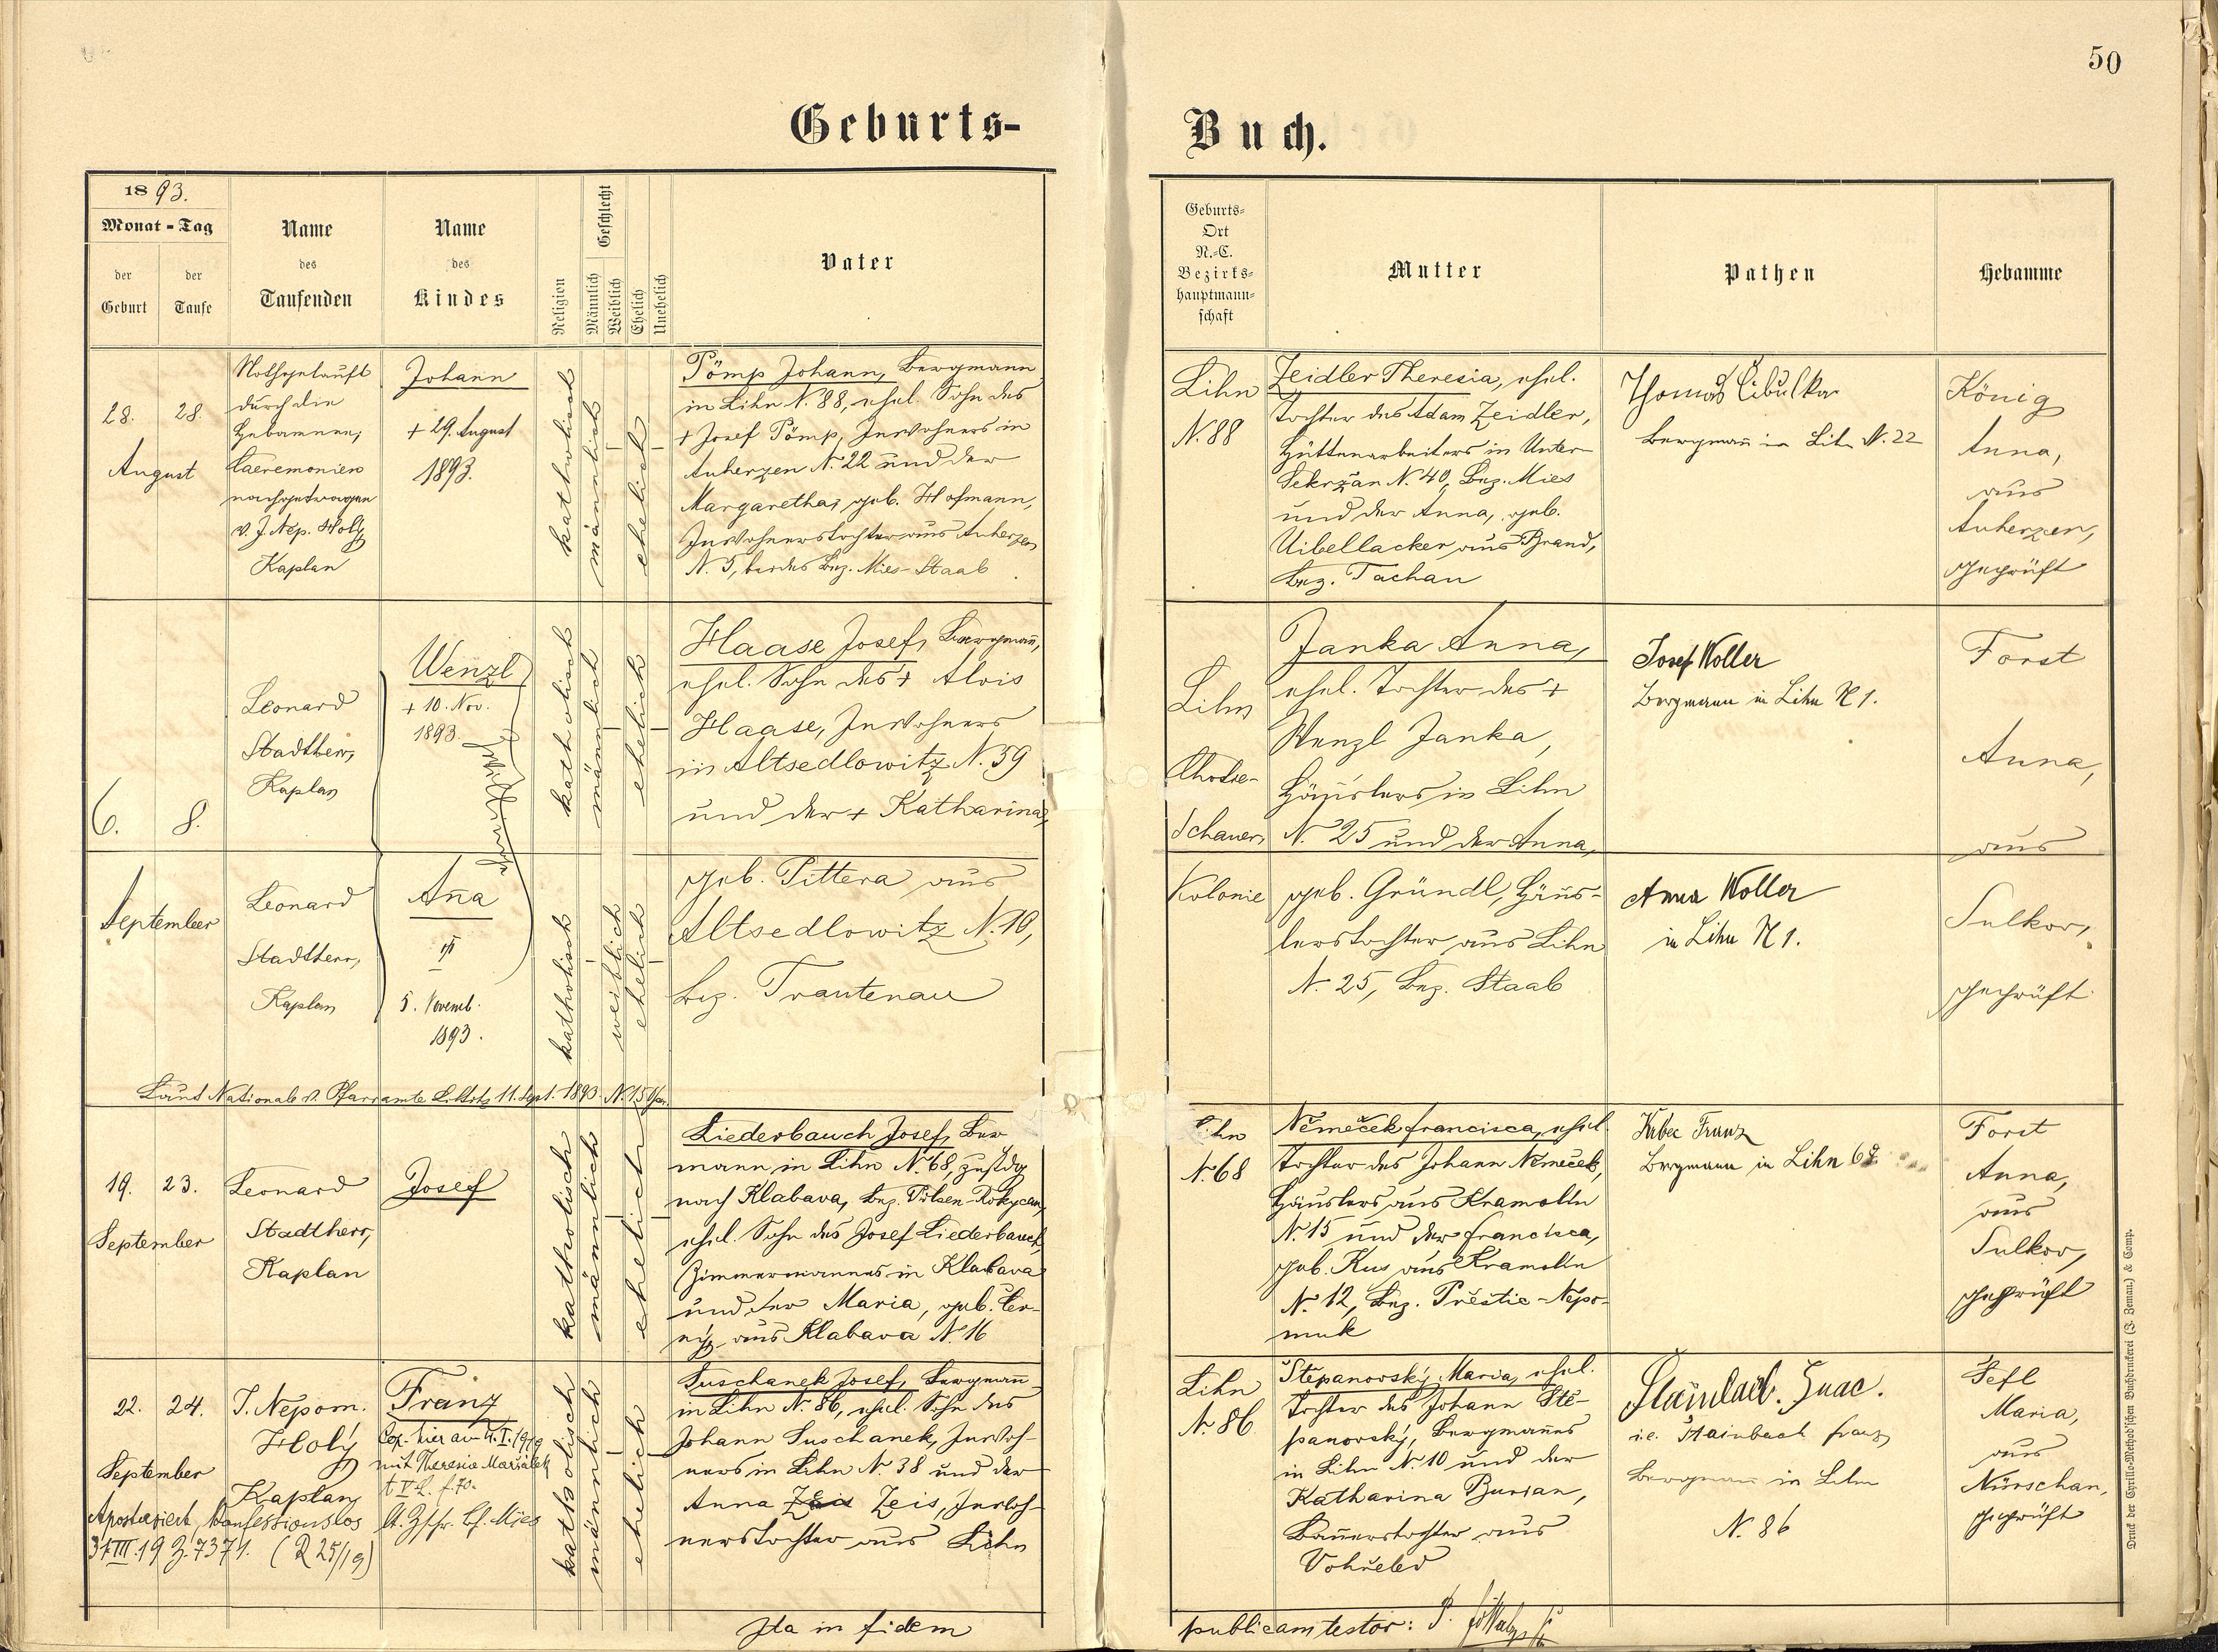 50
Geburts-
Buch.
1893.
Monat - Tag
der Geburt
der Taufe
Name
des
Taufenden
Name
des
Kindes
Religion
Geschlecht
Männlich
Weiblich
Ehelich
Unehelich
Vater
Geburts-
Ort
N.-C.
Bezirks-
hauptmann-
schaft
Mutter
Pathen
Hebamme
28. 28.
August
Nothgetauft
durch die
Hebamme,
Caeremonien
nachgetragen
v. J. Nep. Holý
Kaplan
Johann
+ 29. August
1893.
katholisch
männlich
ehelich
Pömp Johann, Bergmann
in Lihn N. 88, ehel. Sohn des
+ Josef Pömp, Inwohners in
Auherzen N. 22 und der
Margaretha, geb. Hofmann,
Inwohnerstochter aus Auherzen
N. 5, beides Bez. Mies-Staab
Lihn
N. 88
Zeidler Theresia, ehel.
Tochter des Adam Zeidler,
Hüttenarbeiters in Unter-
Sekržan N. 40, Bez. Mies
und der Anna, geb.
Uibellacker aus Brand,
Bez. Tachau
Thomas Cibulka
Bergmañ in Lihn N. 22
König
Anna,
aus
Auherzen,
geprüft
6. 8.
September
Leonard
Stadtherr,
Kaplan
Wenzl
+ 10. Nov.
1893.
katholisch
männlich
ehelich
Haase Josef, Bergmañ,
ehel. Sohn des + Alois
Haase, Inwohners
in Altsedlowitz N. 59
und der + Katharina,
geb. Pittera aus
Altsedlowitz N. 10,
Bez. Trautenau
Lihn
Chotie-
schauer
Kolonie
Janka Anna,
ehel. Tochter des +
Wenzl Janka,
Häuslers in Lihn
N. 25 und der Anna,
geb. Gründl, Häus-
lerstochter aus Lihn
N. 25, Bez. Staab
Josef Woller
Bergmann in Lihn N 1.
Anna Woller
in Lihn N 1.
Forst
Anna,
aus
Sulkov,
geprüft
Leonard
Stadtherr,
Kaplan
Aña
5. Novemb.
1893.
katholisch
weiblich
ehelich
Laut Nationale v. Pfarramte Littitz 11. Sept. 1893. N. 15
19. 23.
September
Leonard
Stadtherr,
Kaplan
Josef
katholisch
männlich
ehelich
Liederbauch Josef, Ber
mann in Lihn N. 68, zustdg
nach Klabava, Bez. Pilsen-Rokycan,
ehel. Sohn des Josef Liederbauch,
Zimmermannes in Klabava
und der Maria, geb. Čer-
ný aus Klabava N. 16
Lihn
N. 68
Němeček Francisca, ehel.
Tochter des Johann Němeček,
Häuslers aus Kramolín
N. 15 und der Francisca,
geb. Kus aus Kramolín
N. 12, Bez. Přeštic-Nepo-
muk
Franz
Bergmann in Lihn 68
Forst
Anna,
aus
Sulkov,
geprüft
22. 24.
September
J. Nepom.
Holý
Kaplan
Franz
Cop. hier am
mit Theresie Maršálek
t V L. f. 70.
Apostasiert, konfessionslos
31.III.19 Z. 7371. (R 25/19)
katholisch
männlich
ehelich
Suschanek Josef, Bergmañ
in Lihn N. 86, ehel. Sohn des
Johann Suschanek, Inwoh-
ners in Lihn N. 38 und der
Anna Zeis, Inwoh-
nerstochter aus Lihn
Lihn
N. 86
Štěpanovský Maria, ehel.
Tochter des Johann Stě-
panovský, Bergmannes
in Lihn N. 10 und der
Katharina Burian,
Bauerstochter aus
Vohřeled
i.e. Stainbach Franz
Bergmann in Lihn
N. 86
Šefl
Maria,
aus
Nürschan,
geprüft
Ita in fidem
publicam testor: P.
Druck der Cyrillo-Method'schen Buchdruckerei (J. Zeman.) & Comp.